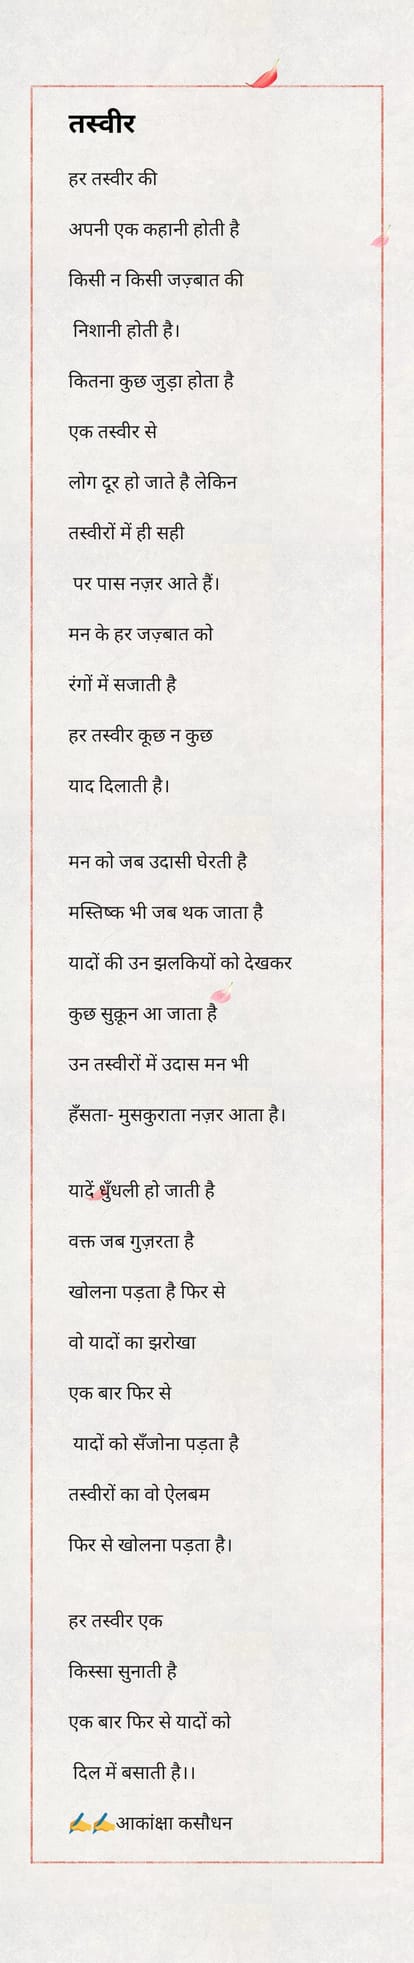 तस्वीर
हर तस्वीर की
अपनी एक कहानी होती है
किसी न किसी जज़्बात की
निशानी होती है।
कितना कुछ जुड़ा होता है
एक तस्वीर से
लोग दूर हो जाते है लेकिन
तस्वीरों में ही सही
पर पास नज़र आते हैं।
मन के हर जज़्बात को
रंगों में सजाती है
हर तस्वीर कूछ न कुछ
याद दिलाती है।
मन को जब उदासी घेरती है
मस्तिष्क भी जब थक जाता है
यादों की उन झलकियों को देखकर
कुछ सुक़ून आ जाता है
उन तस्वीरों में उदास मन भी
हँसता- मुसकुराता नज़र आता है।
यादें धुँधली हो जाती है
वक्त जब गुज़रता है
खोलना पड़ता है फिर से
वो यादों का झरोखा
एक बार फिर से
यादों को सँजोना पड़ता है
तस्वीरों का वो ऐलबम
फिर से खोलना पड़ता है।
हर तस्वीर एक
किस्सा सुनाती है
एक बार फिर से यादों को
दिल में बसाती है।।
✍️✍️आकांक्षा कसौधन